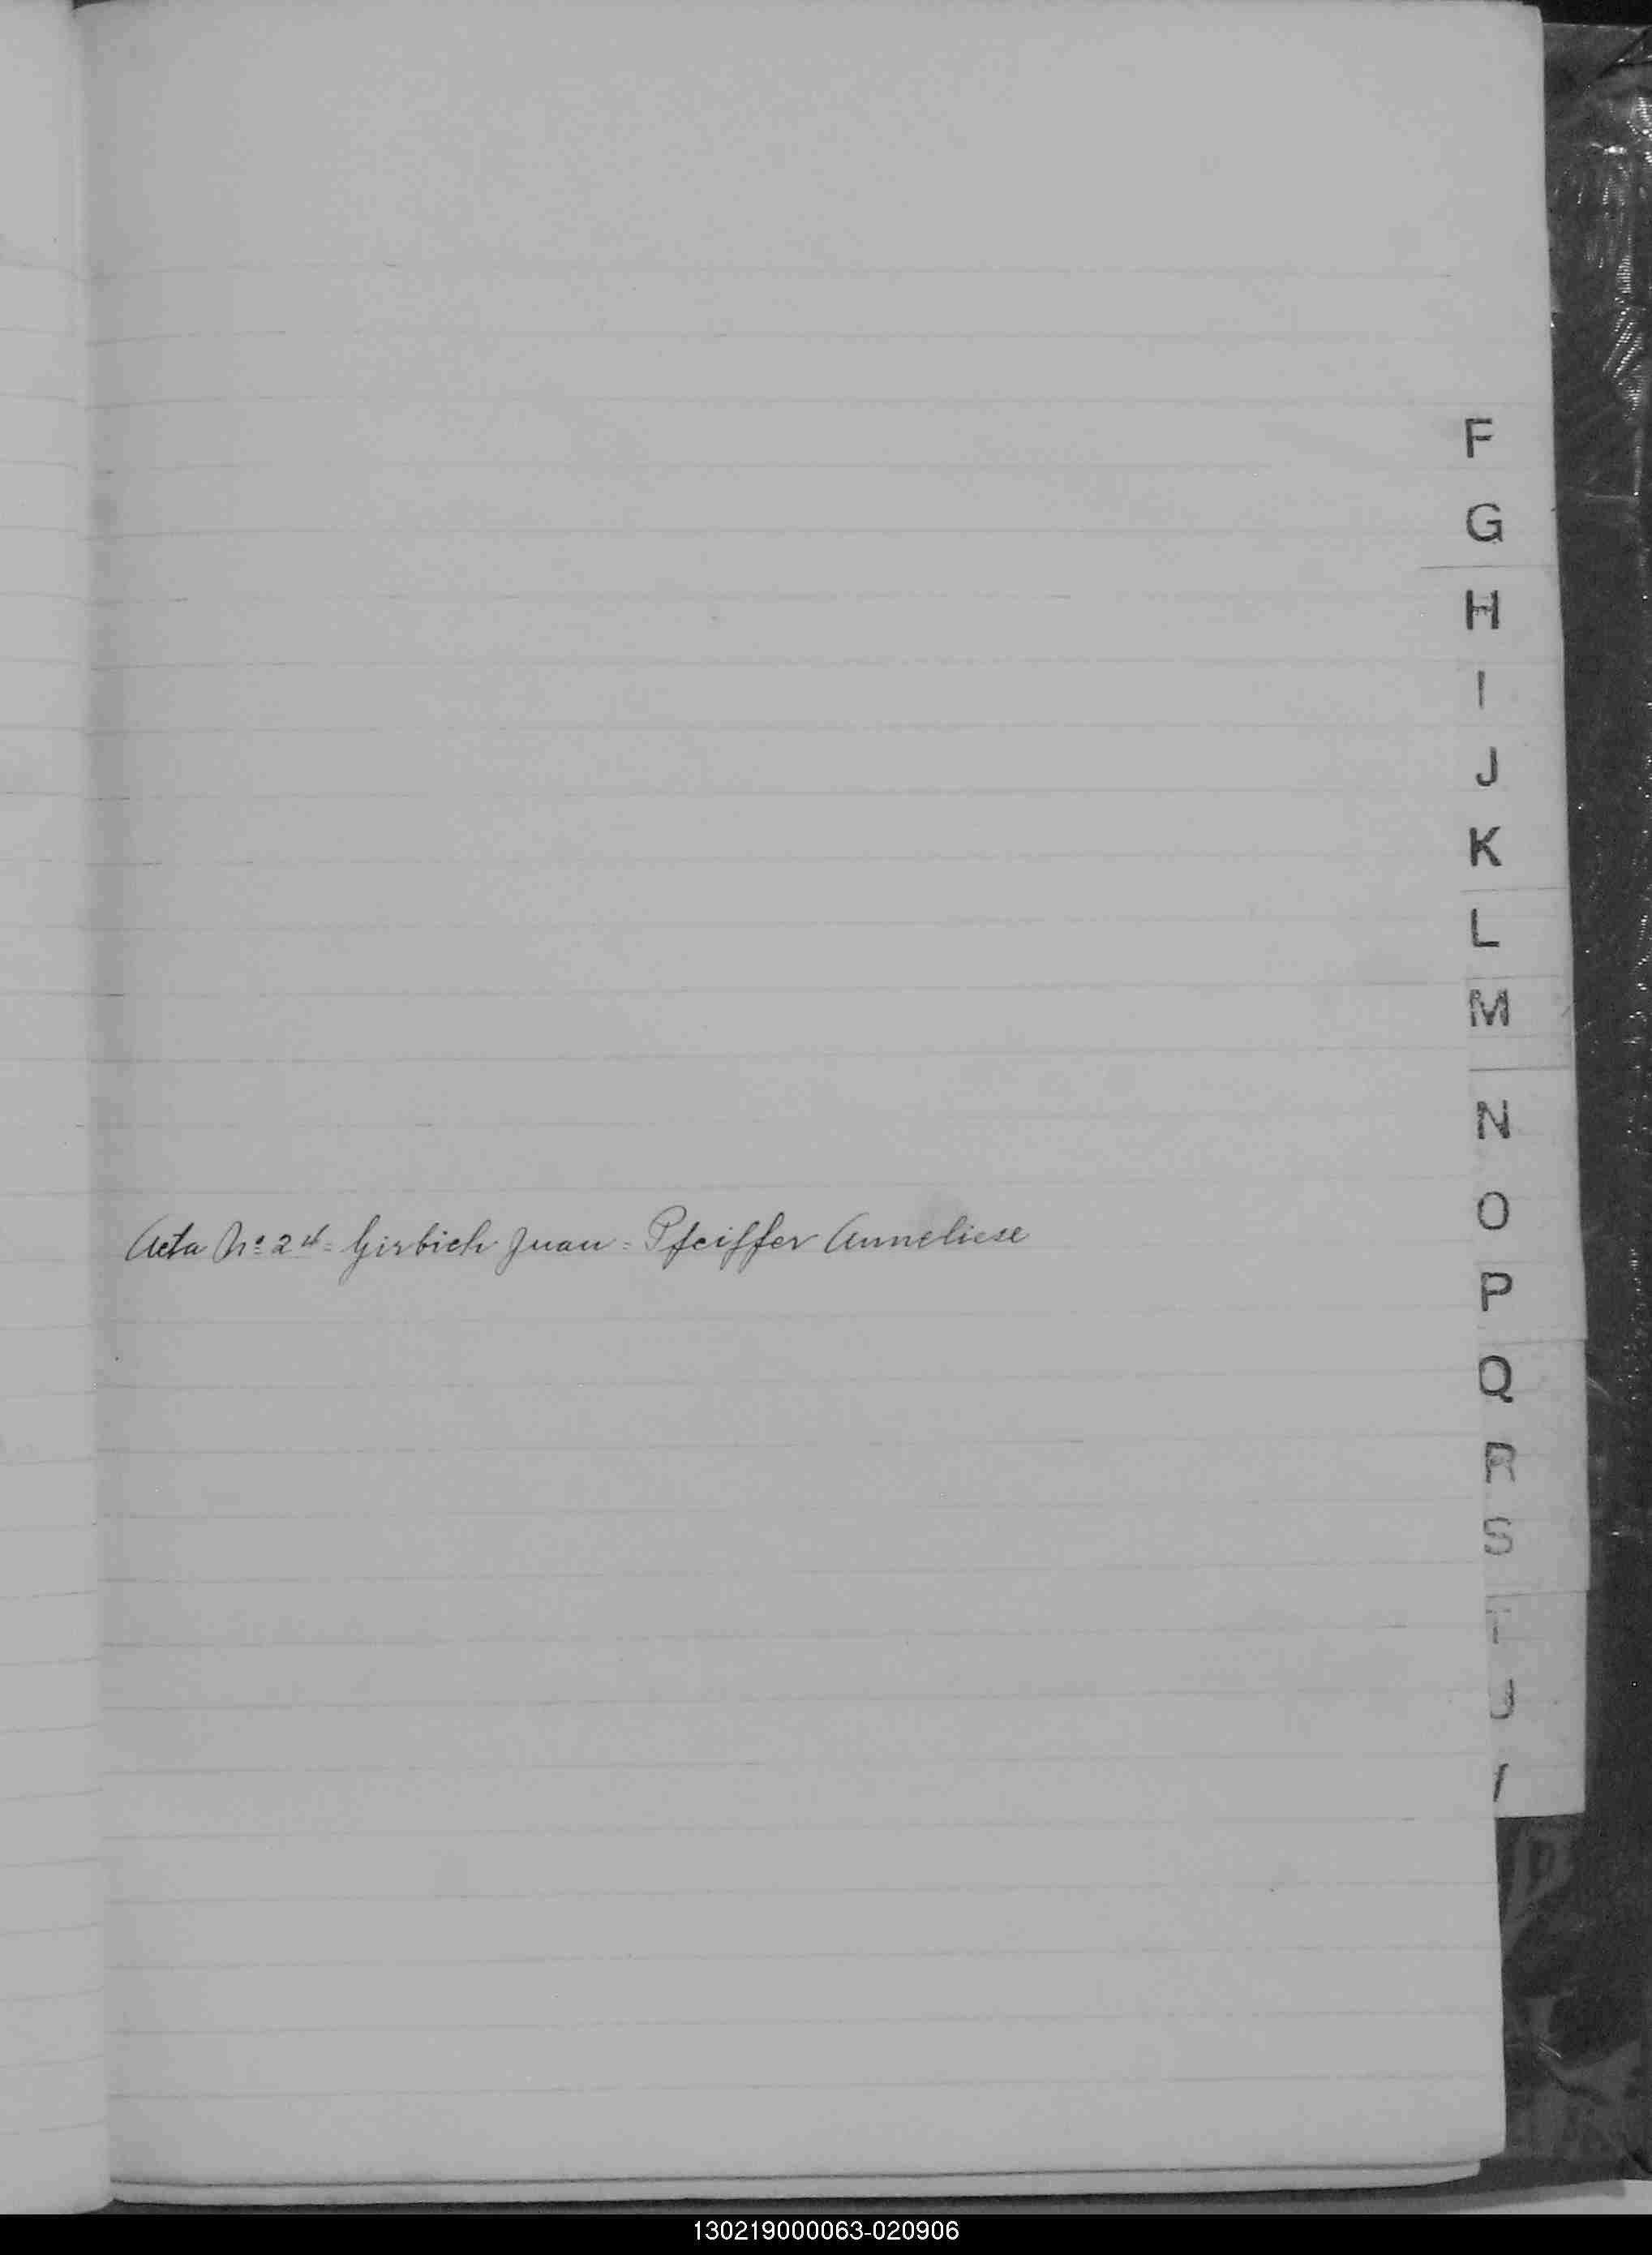 F
G
H
I
J
K
L
M
N
O
Acta Nº 24 = Girbich Juan = Pfeiffer Anneliese
P
Q
R
S
T
U
V
130219000063-020906